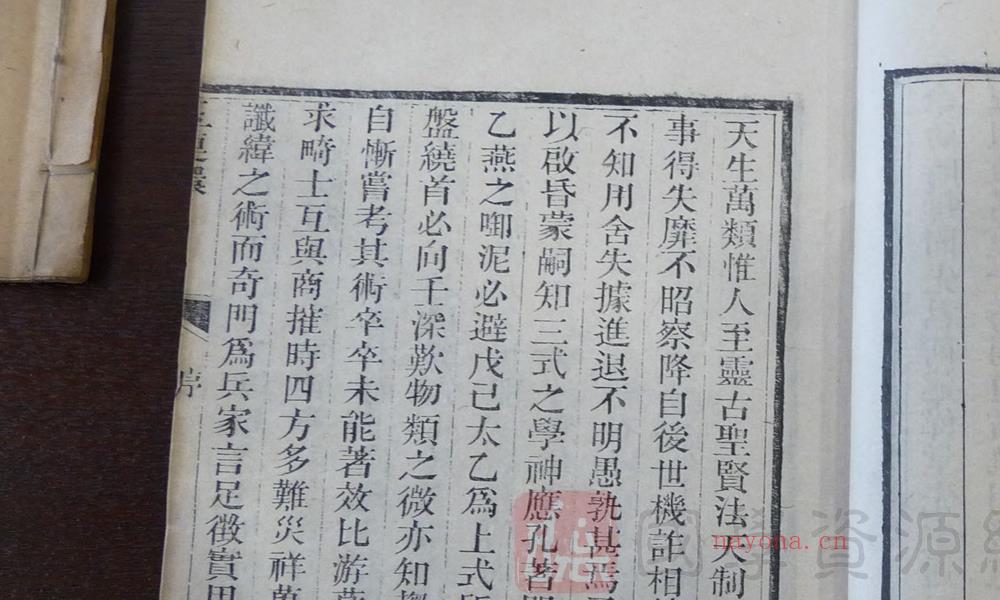 天生萬類惟人至靈古聖賢法天制
事得失靡不昭察降自後世機詐相
不知用舍失據進退不明愚孰甚焉
以啟昏蒙嗣知三式之學神應孔著
乙燕之啣泥必避戊己太乙爲上式
盤繞首必向壬深歎物類之微亦知
自慚嘗考其術卒卒未能著效比游
求畸士互與商搉時四方多難災祥
讖緯之術而奇門爲兵家言足徵實用
序
國學資源
nayona.cn